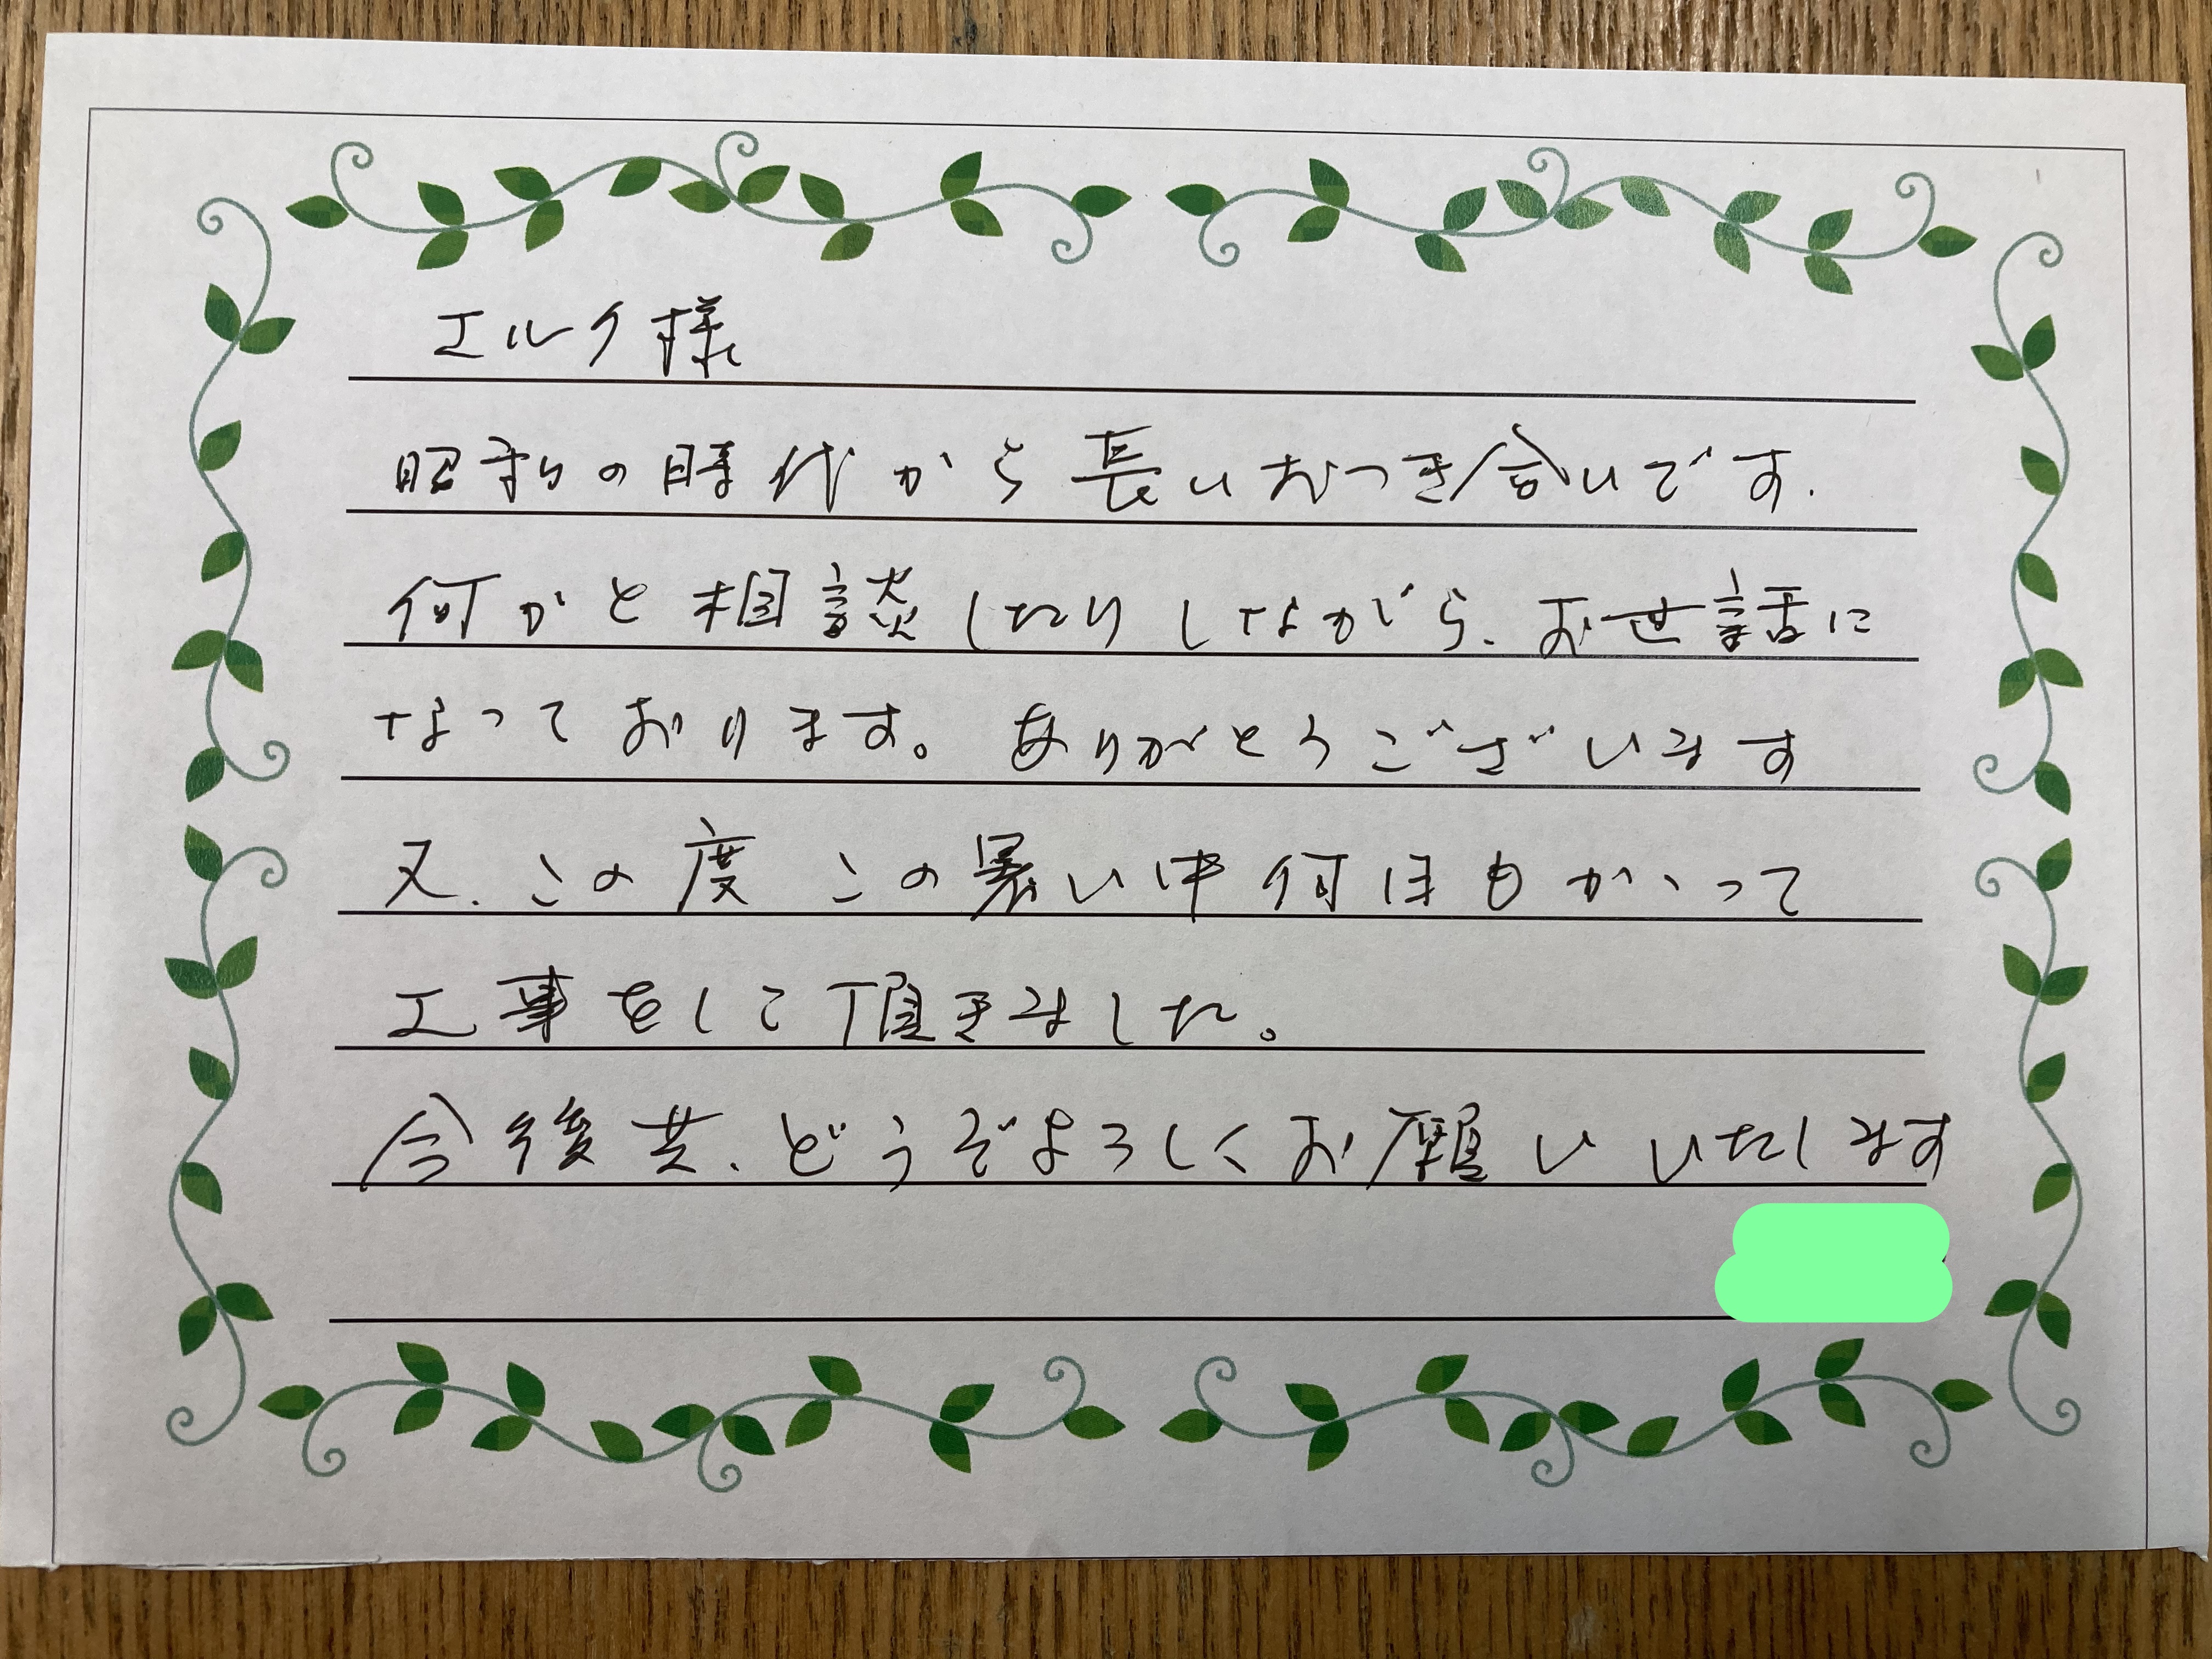 エルク様
昭和の時代から長いおつき合いです.
何かと相談したりしながら、お世話に
なっております。ありがとうございます
又、この度この暑い中何日もかゝって
工事をして頂きました。
今後共、どうぞよろしくお願いいたします